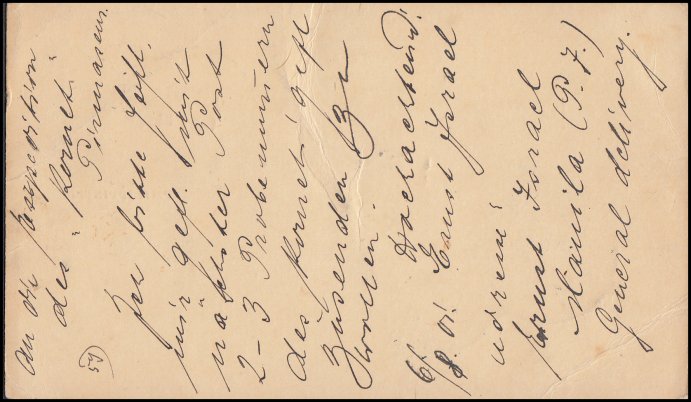 An die Expedition
des "Kornet"
Pirmasens.
Ich bitte höfl.
mir gefl. mit
nächster Post
2-3 Probenummern
des Kornet gefl.
zusenden zu
wollen.
Hochachtend!
6/8. 01. Ernst Israel
Adresse:
Ernst Israel
Manila (P. J.)
General delivery.
59